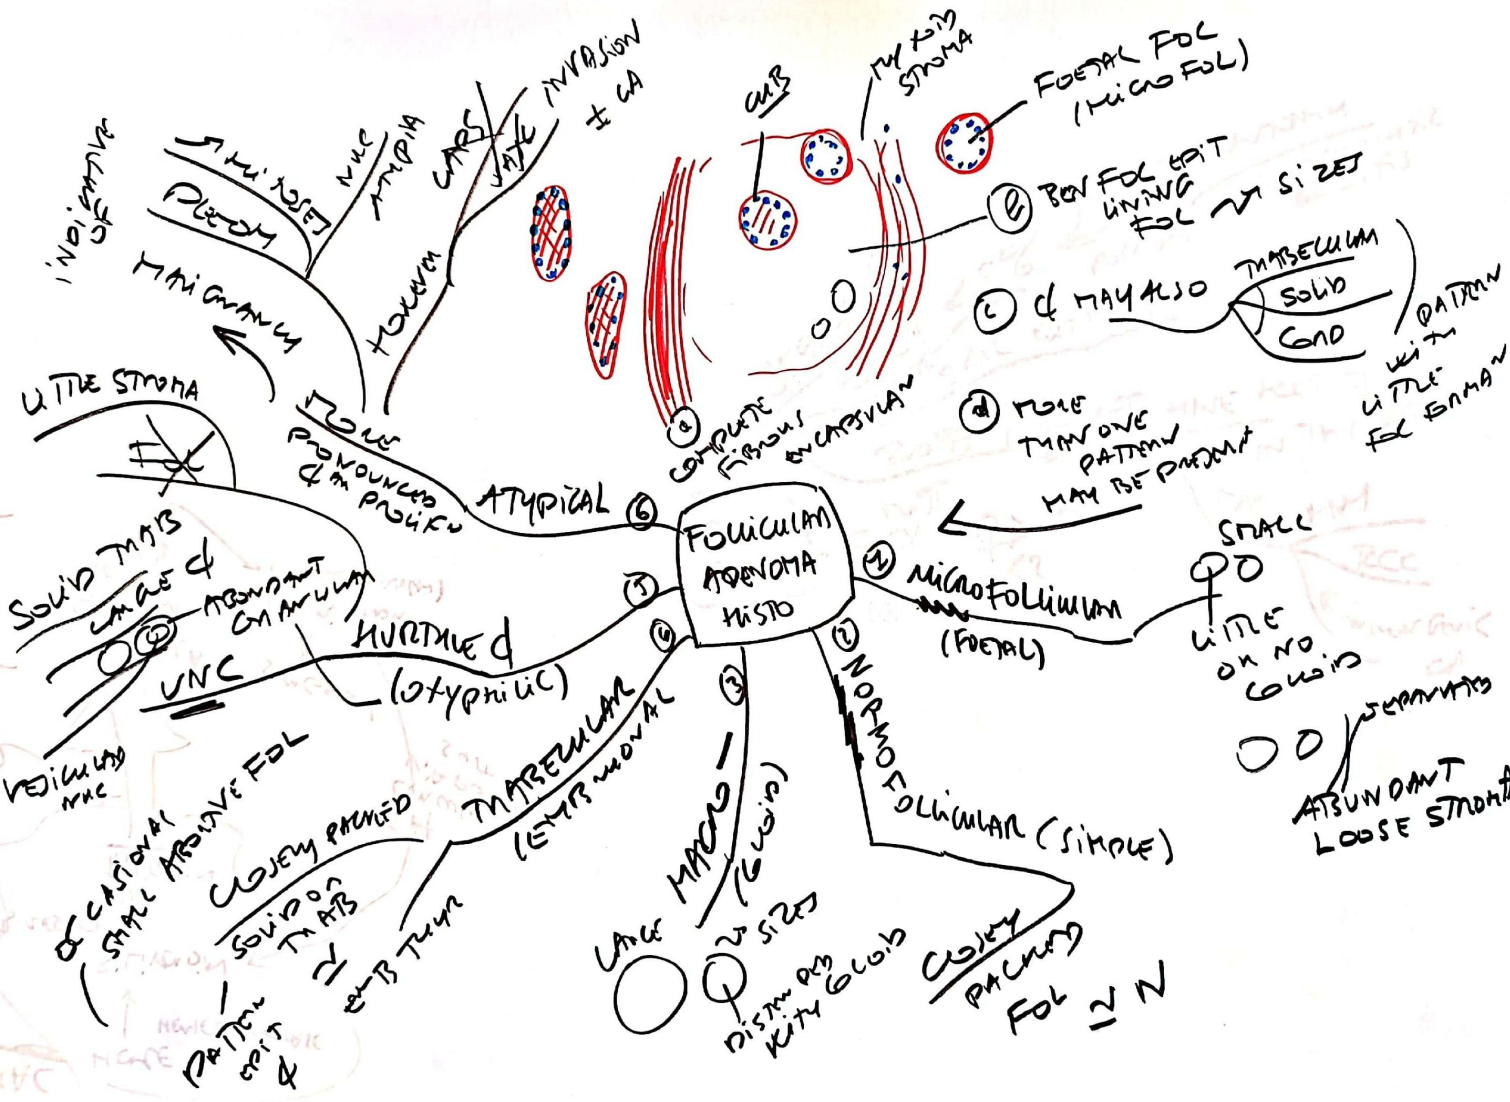 FOLLICULAR
ADENOMA
HISTO
① MICROFOLLICULAR
(FOETAL)
SMALL
LITTLE
OR NO
COLLOID
SEPARATED
ABUNDANT
LOOSE STROMA
② NORMOFOLLICULAR (SIMPLE)
CLOSELY
PACKED
FOL ≃ N
③ MACRO—
(COLLOID)
LARGE
SIZES
DISTENDED
WITH COLLOID
④ TRABECULAR
(EMBRYONAL
CLOSELY PACKED
SOLID OR
TRAB
≃
EMB THYR
PATTERN
EPIT
OCCASIONAL
SMALL ABORTIVE FOL
⑤ HURTHLE
(OXYPHILIC)
ABUNDANT
GRANULAR
UNC
SOLID TRAB
LARGE
VESICULAR
NUC
LITTLE STROMA
FOL
⑥ ATYPICAL
MORE
PRONOUNCED
IN PROLIFN
MALIGNANCY
INDICATIVE
OF
MITOSES
PLEOM
NUC
ATYPIA
HOWEVER
CAPS
VASC
INVASION
± CA
COLL
MYXOID
STROMA
FOETAL FOL
(MICROFOL)
ⓐ COMPLETE
FIBROUS
ENCAPSULAN
ⓑ BEN FOL EPIT
LINING
FOL SIZES
ⓒ MAY ALSO
TRABECULAR
SOLID
CORD
PATTERN
WITH
LITTLE
FOL FORMAN
ⓓ MORE
THAN ONE
PATTERN
MAY BE PRESENT